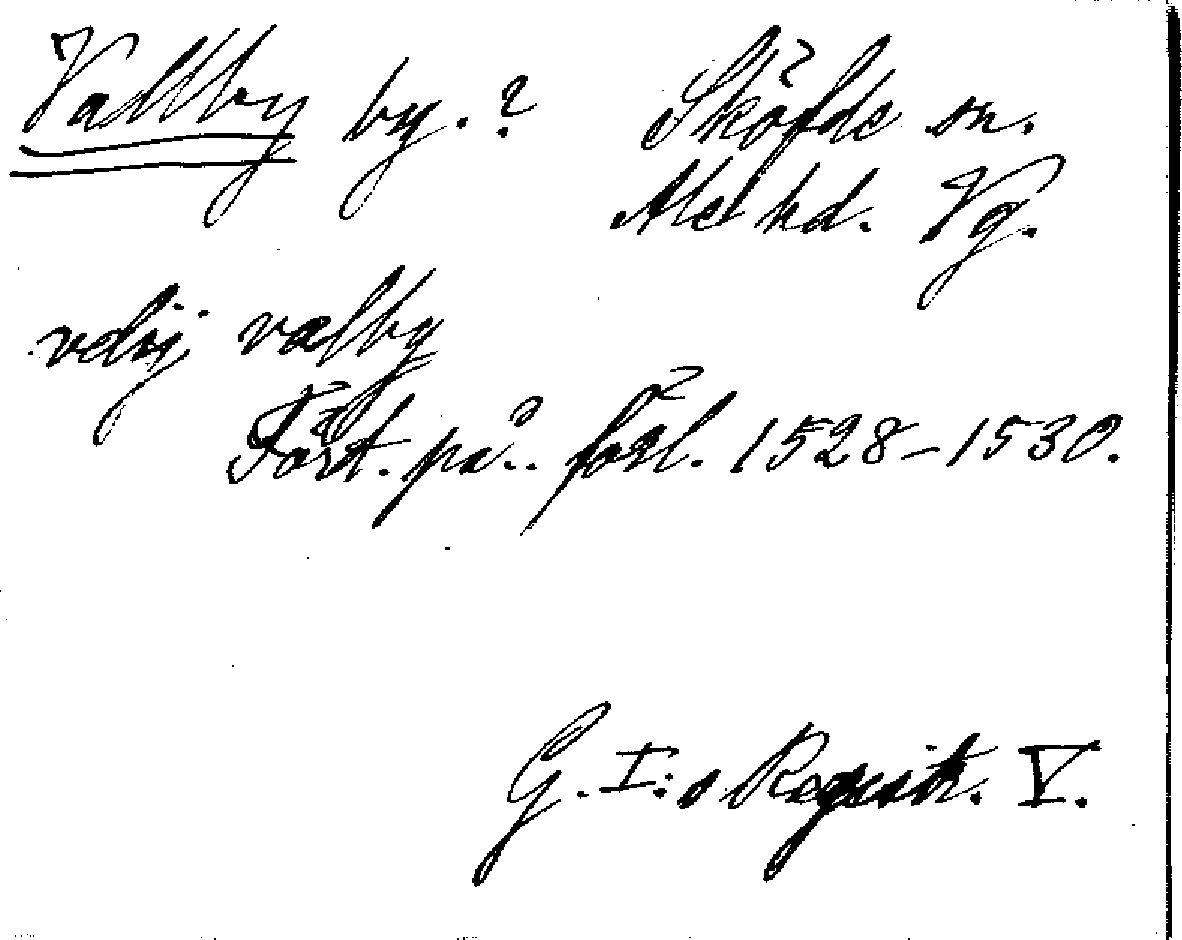 Vallby by. ? Sköfde sn.
Ale hd. Vg.
velsij valby
Fört. på förl. 1528–1530.
G. I:s Registr. V.